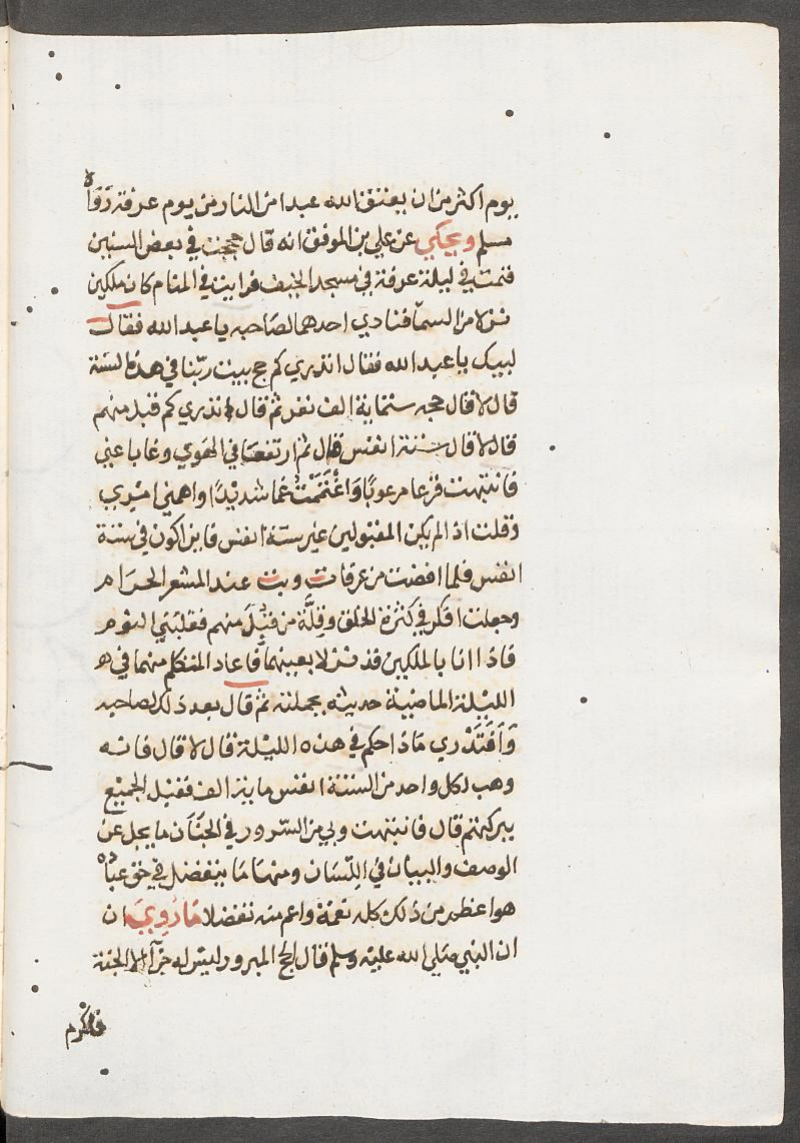 يوم اكثر من ان يعتق الله عبدا من النار من يوم عرفة رواه
مسلم ويحكي عن علي بن الموفق انه قال حججت في بعض السنين
فنمت في ليلة عرفة في مسجد الخيف فرايت في المنام كان ملكين
نزلا من السما فنادي احدهما لصاحبه يا عبد الله فقال
لبيك يا عبد الله فقال اتدري كم حج بيت ربنا في هذه السنة
قال لا قال حجه ستماية الف نفر ثم قال اتدري كم قبل منهم
قال لا قال ستة انفس قال ثم ارتفعا في الهوي وغابا عني
فانتبهت فزعا مرعوبا واغتممت غما شديدا واهمني امري
وقلت اذا لم يكن المقبولين غير ستة انفس فاين اكون في ستة
انفس فلما افضت من عرفات وبت عند المشعر الحرام
وجعلت افكر في كثرة الخلق وقلة من قبل منهم فغلبني النوم
فاذا انا بالملكين قد نزلا بعينهما فاعاد المتكلم منهما في ه
الليلة الماضية حديثه بجملته ثم قال بعد ذلك لصاحبه
وافتدري ماذا حكم في هذه الليلة قال لا قال فانه
وهب لكل واحد من الستة انفس ماية الف فقبل الجميع
ببركتهم قال فانتبهت وبي من السرور في الجنان ما يجل عن
الوصف والبيان في اللسان ومنها ما يتفضل في حق عباده
هو اعظم من ذلك كله نعمة واعم منه تفضلا ما روي ان
ان النبي صلي الله عليه وسلم قال الحج المبرور ليس له جزآ الا الجنة
فاكرم